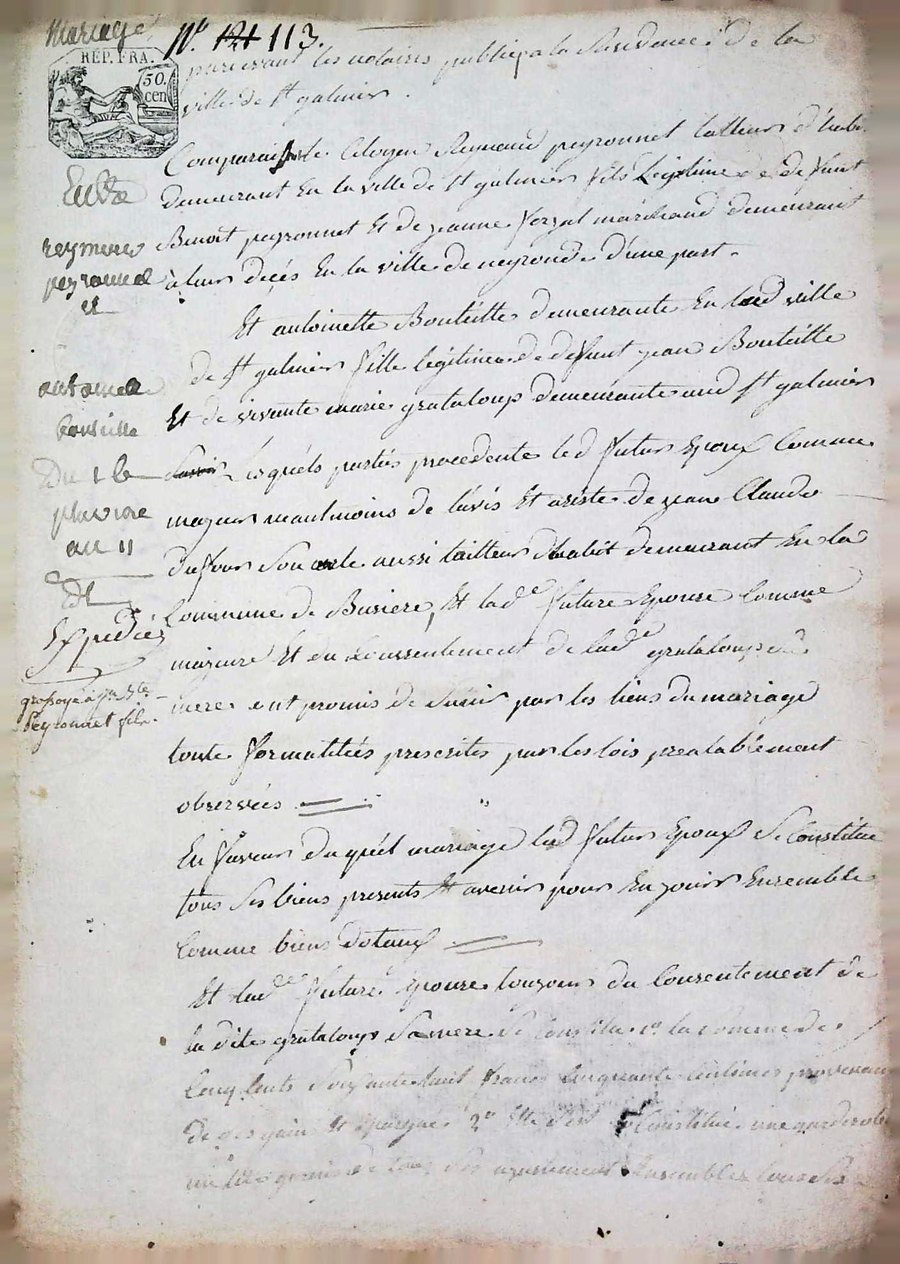 Mariage
N.° 121 113.
RÉP. FRA.
50.
cen
pardevant les notaires publics a la Residence de la
ville de St galmier.
Comparaissoit le Citoyen Reymond peyronnet tailleur d'habi.
demeurant En la ville de St galmier fils Legitime de defunt
Benoit peyronnet Et de jeanne forzal marchand demeurant
à leur decés En la ville de neyronde d'une part.
Et antoinette Bouteille demeurante En lad ville
de St galmier fille legitime de defunt jean Bouteille
Et de vivante marie grataloup demeurante aud St galmier
Lesquéls partiés procedente led futur Epoux Comme
majeur neaulmoins de l'avis Et asiste de jean Claude
dufour Son oncle aussi tailleur dhabit demeurant En la
Commune de Busiere, Et lad.e future Epouse Comme
majeure Et du Conssentement de lad.e grataloup sa
mere ont promis de S'unir par les liens du mariage
toute formalitiés prescrites par les lois prealablement
observées.
En faveur du quéél mariage led futur Epoux Se Constitue
tous Ses biens presents Et avenir pour En jouir Ensemble
Comme biens dotaux
Et lad.e future Epouse toujours du Consentement de
la dite grataloup Sa mere Se Constitue 1.° la somme de
Cinq Cents Soixante huit francs Cinquante Centimes provenant
de ses gains Et Epargnes 2.° Elle S'est Constitué une garderobe
Entre
reymond
peyronnet
Et
antoinette
bouteille
Du 1 b
pluviose
an 11
Expedié
grossoyé à
Peyronnet fils.